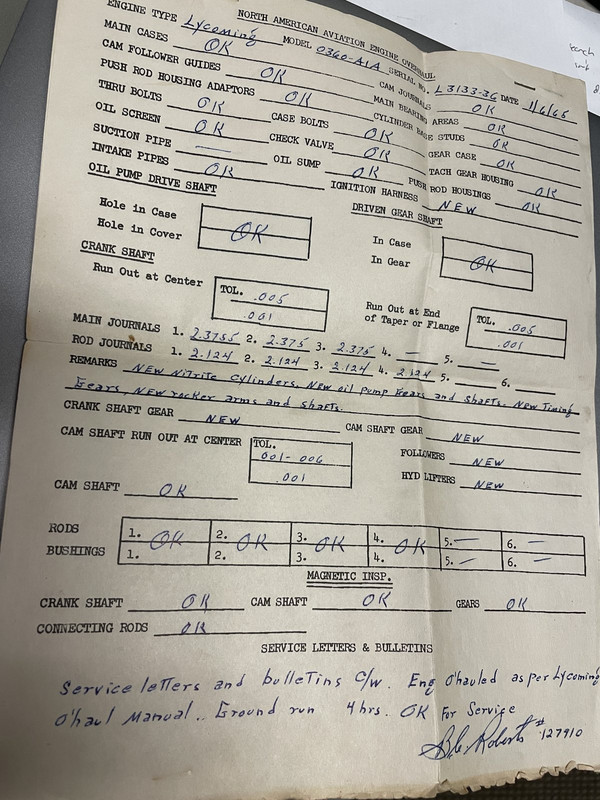 NORTH AMERICAN AVIATION ENGINE OVERHAUL
ENGINE TYPE Lycoming MODEL O360-A1A SERIAL NO. L3133-36 DATE 1/6/65
MAIN CASES OK CAM JOURNALS OK
CAM FOLLOWER GUIDES OK MAIN BEARING AREAS OK
PUSH ROD HOUSING ADAPTORS OK CYLINDER BASE STUDS OK
THRU BOLTS OK CASE BOLTS OK GEAR CASE OK
OIL SCREEN OK CHECK VALVE OK TACH GEAR HOUSING OK
SUCTION PIPE — OIL SUMP OK PUSH ROD HOUSINGS OK
INTAKE PIPES OK IGNITION HARNESS NEW
OIL PUMP DRIVE SHAFT DRIVEN GEAR SHAFT
Hole in Case In Case
Hole in Cover OK In Gear OK
CRANK SHAFT
Run Out at Center TOL. .005 Run Out at End TOL. .005
.001 of Taper or Flange .001
MAIN JOURNALS 1. 2.3755 2. 2.375 3. 2.375 4. — 5. —
ROD JOURNALS 1. 2.124 2. 2.124 3. 2.124 4. 2.124 5. 6.
REMARKS NEW Nitrite Cylinders. New oil pump Gears and Shafts. New Timing
Gears, NEW rocker arms and shafts.
CRANK SHAFT GEAR NEW CAM SHAFT GEAR NEW
CAM SHAFT RUN OUT AT CENTER TOL. 001-006 FOLLOWERS NEW
.001 HYD LIFTERS NEW
CAM SHAFT OK
RODS 1. OK 2. OK 3. OK 4. OK 5. — 6. —
BUSHINGS 1. 2. 3. 4. 5. — 6. —
MAGNETIC INSP.
CRANK SHAFT OK CAM SHAFT OK GEARS OK
CONNECTING RODS OK
SERVICE LETTERS & BULLETINS
Service letters and bulletins C/W. Eng O'hauled as per Lycoming
O'haul Manual.. Ground run 4 hrs. OK For Service
Roberts # 127910